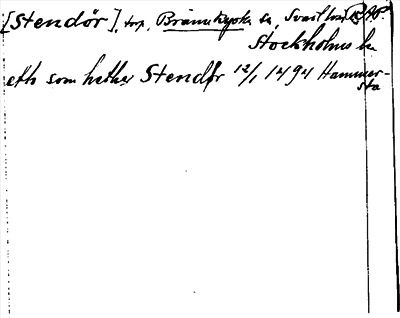 [Stendör], trp, Brännkyrka sn, Svartlösa
Stockholms län
ett som hether Stendör 12/1 1494 Hammer-
sta